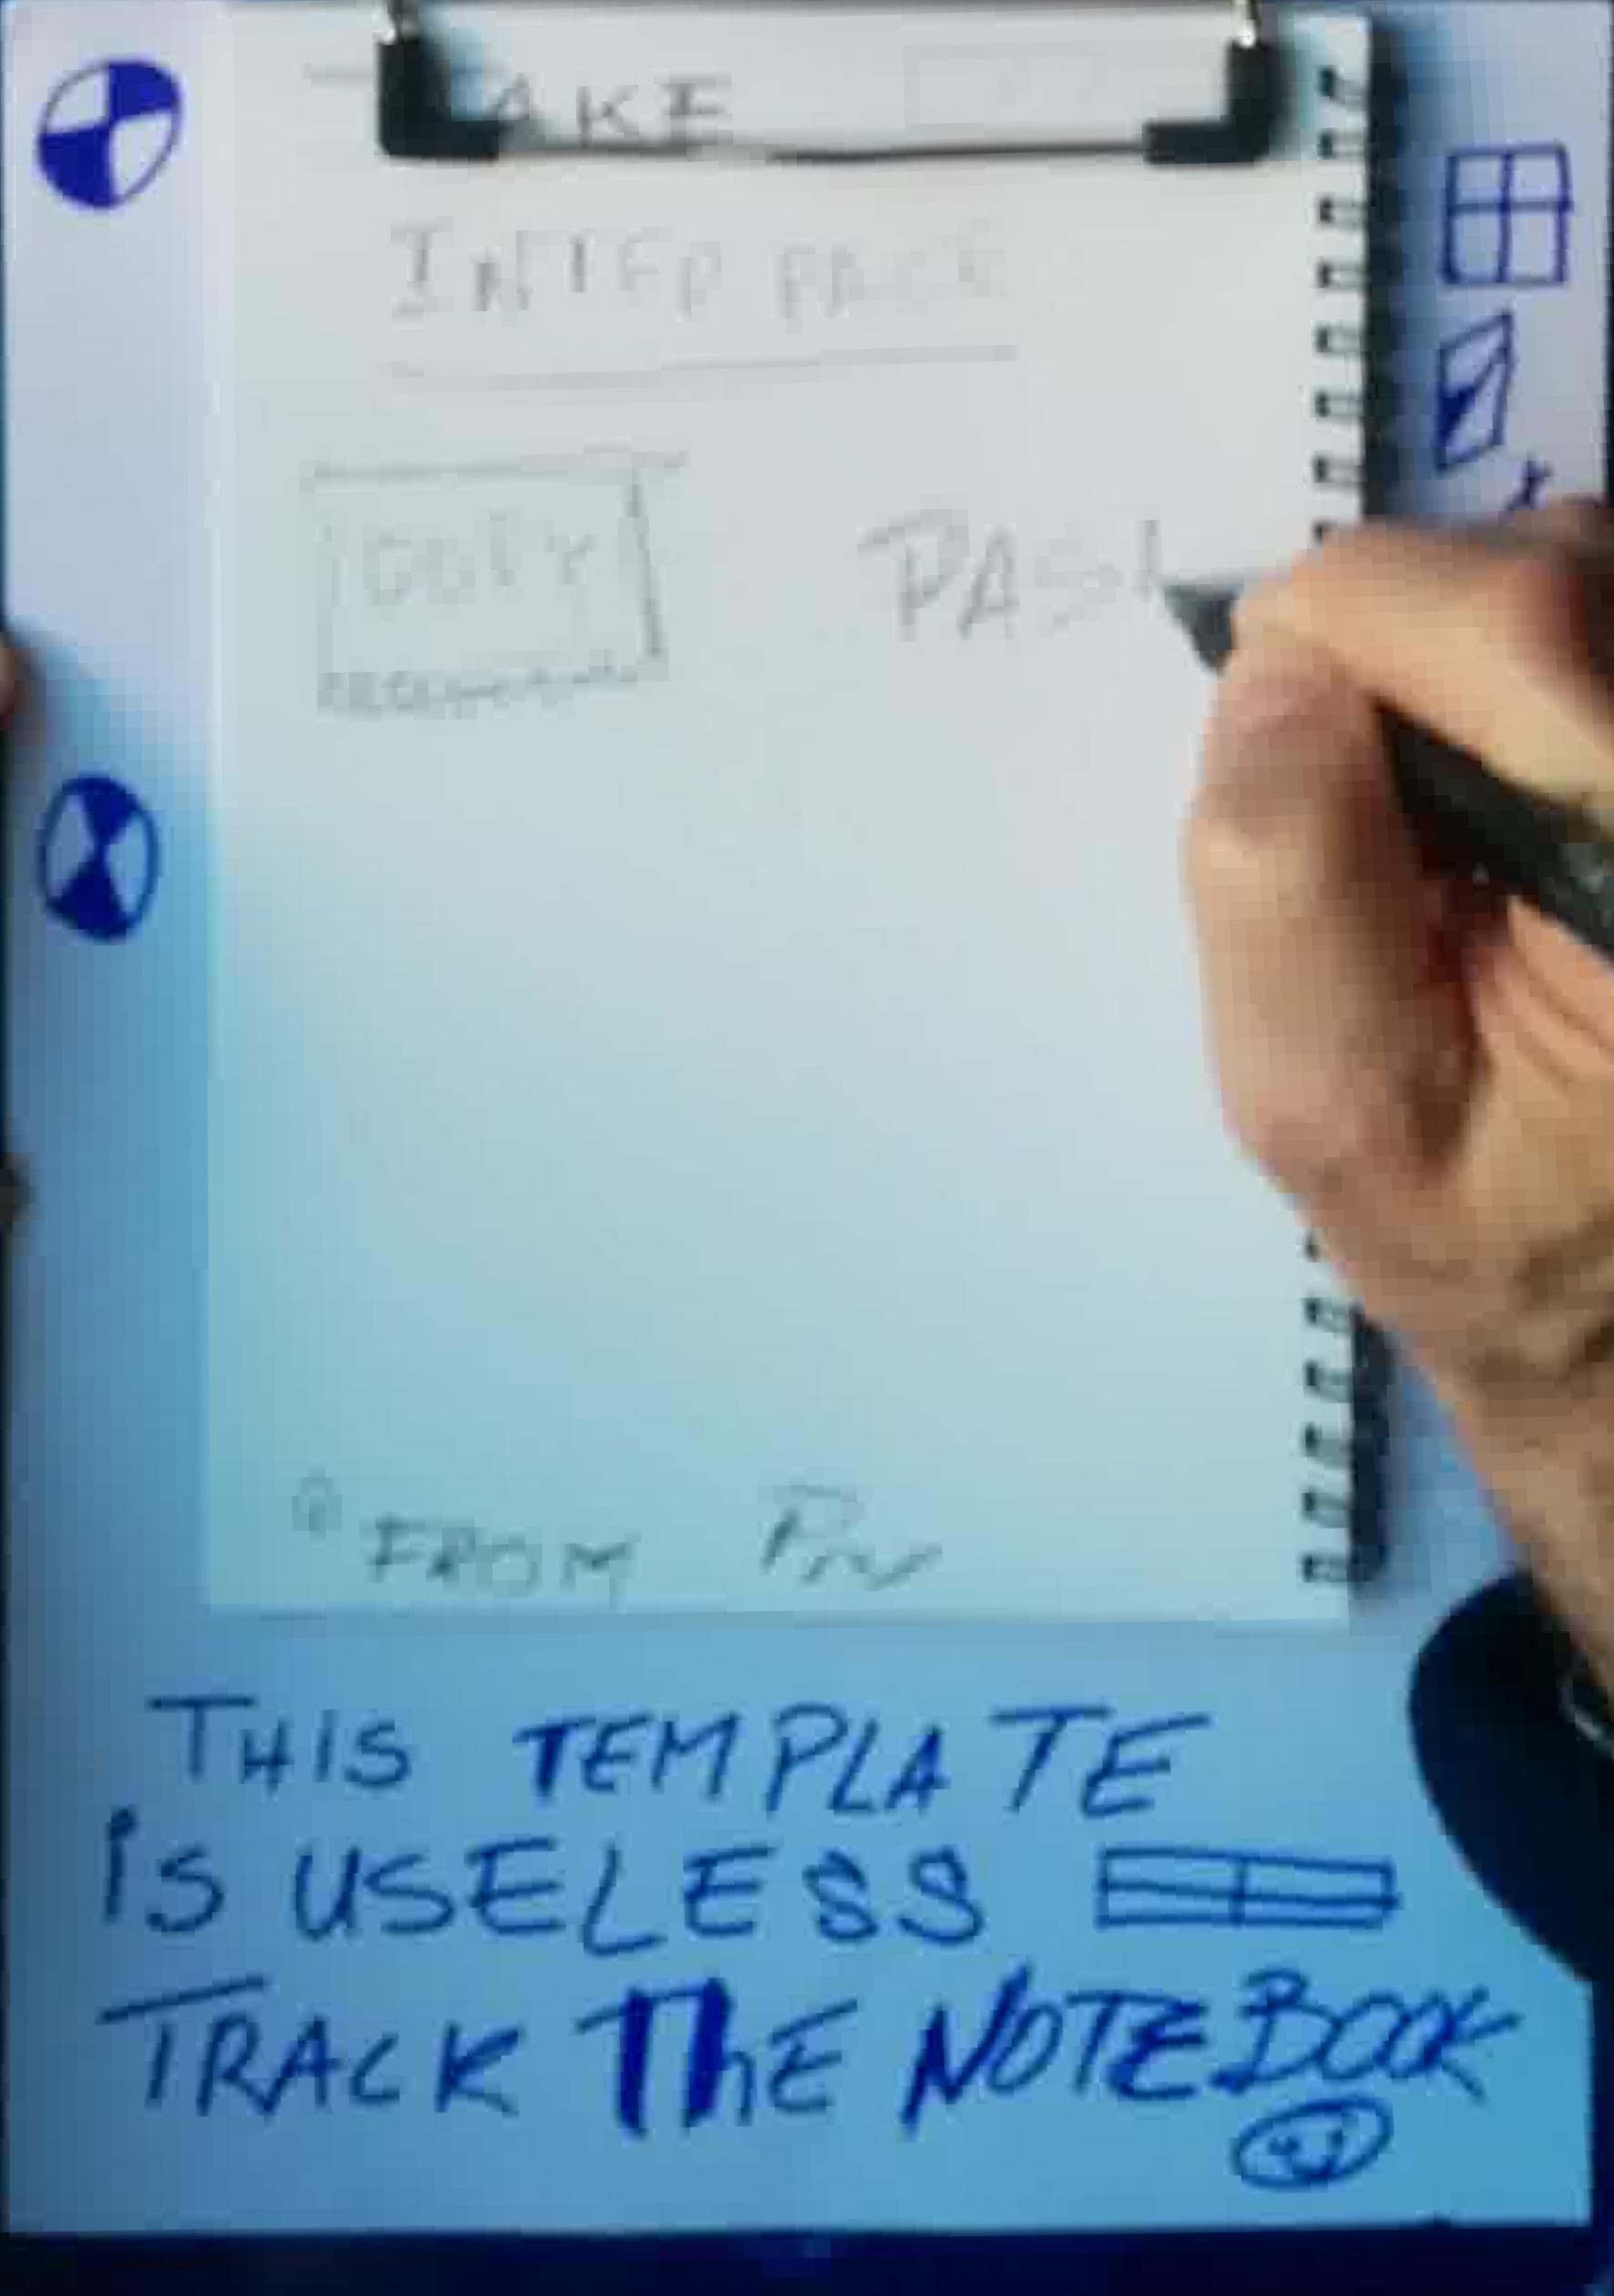 INTERFACE
COPY
FROM
THIS TEMPLATE
is USELESS
TRACK ThE NOTEBOOK